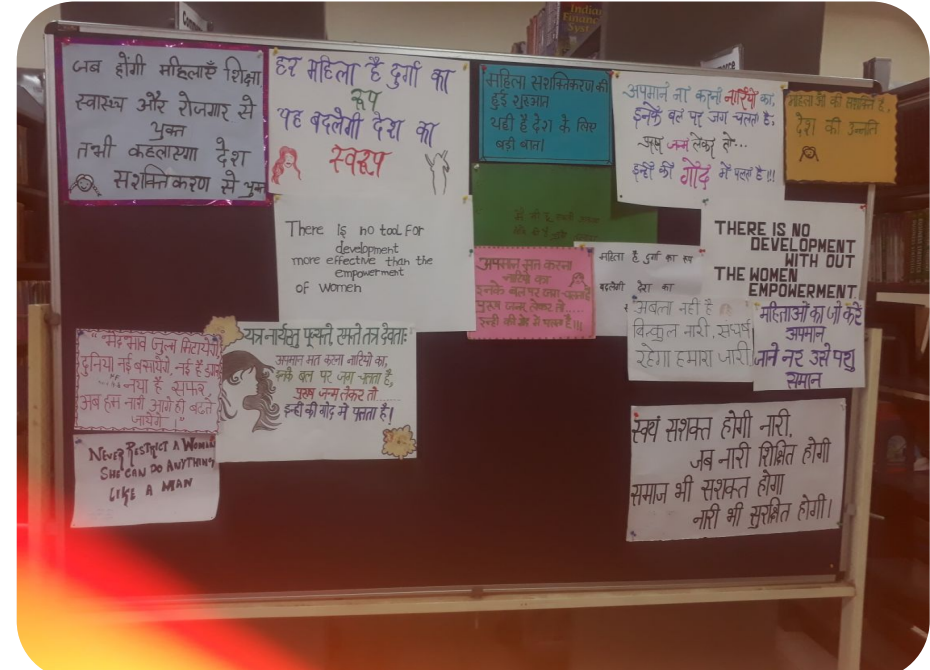 Indian
Financ
Syst
जब होंगी महिलाएँ शिक्षा
स्वास्थ्य और रोजगार से
युक्त
तभी कहलाएगा देश
सशक्तिकरण से युक्त
हर महिला है दुर्गा का
रूप
यह बदलेगी देश का
स्वरूप
महिला सशक्तिकरण की
हुई शुरुआत
यही है देश के लिए
बड़ी बात।
अपमान ना करना नारियों का,
इनके बल पर जग चलता है,
जन्म लेकर तो...
इन्हीं की गोद में पलता है!!!
महिलाओं की
देश की उन्नति
There is no tool for
development
more effective than the
empowerment
of women
अपमान मत करना
नारियों का
इनके बल पर जग चलता है
पुरुष जन्म लेकर तो.....
इन्हीं की गोद में पलता है!!!
महिला है दुर्गा का रूप
बदलेगी देश का
THERE IS NO
DEVELOPMENT
WITH OUT
THE WOMEN
EMPOWERMENT
अबला नही है
बिल्कुल नारी, संघर्ष
रहेगा हमारा जारी
महिलाओं का जो करे
अपमान
जाने नर उसे पशु
समान
जुल्म मिटायेंगे
दुनिया नई बसायेंगे, नई है
नया है सफर
अब हम नारी आगे ही बढ़ते
जायेंगे।"
यत्र नार्यस्तु पूज्यन्ते रमन्ते तत्र देवताः
अपमान मत करना नारियों का,
इनके बल पर जग चलता है,
पुरुष जन्म लेकर तो.....
इन्हीं की गोद में पलता है!
NEVER RESTRICT A WOMAN
SHE CAN DO ANYTHING
LIKE A MAN
स्वयं सशक्त होगी नारी,
जब नारी शिक्षित होगी
समाज भी सशक्त होगा
नारी भी सुरक्षित होगी।